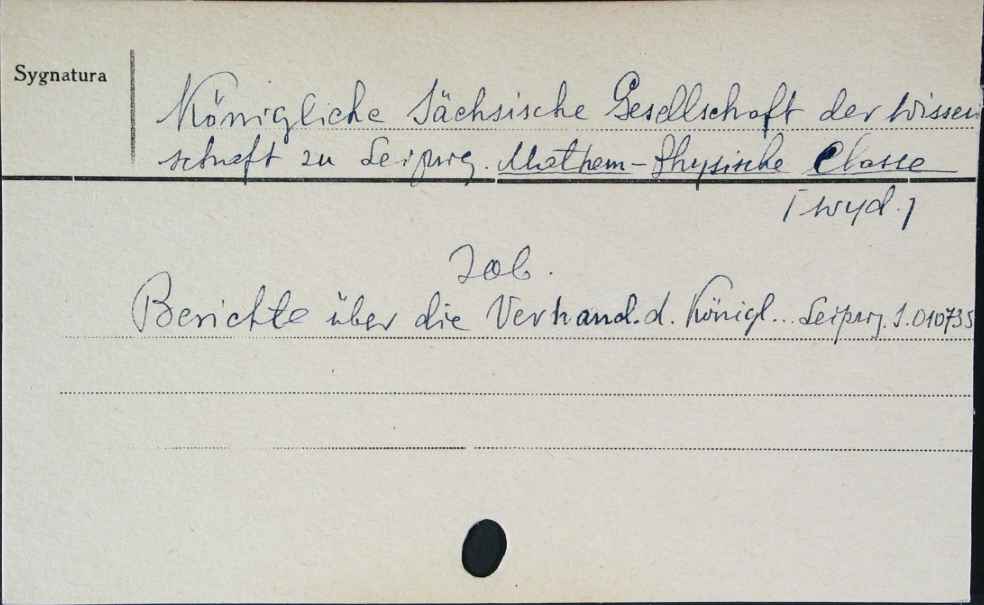 Sygnatura
Königliche Sächsische Gesellschaft der Wissen
schaft zu Leipzig. Mathem-Physische Classe
[wyd.]
Zob.
Berichte über die Verhand. d. Königl... Leipzig. S.010735